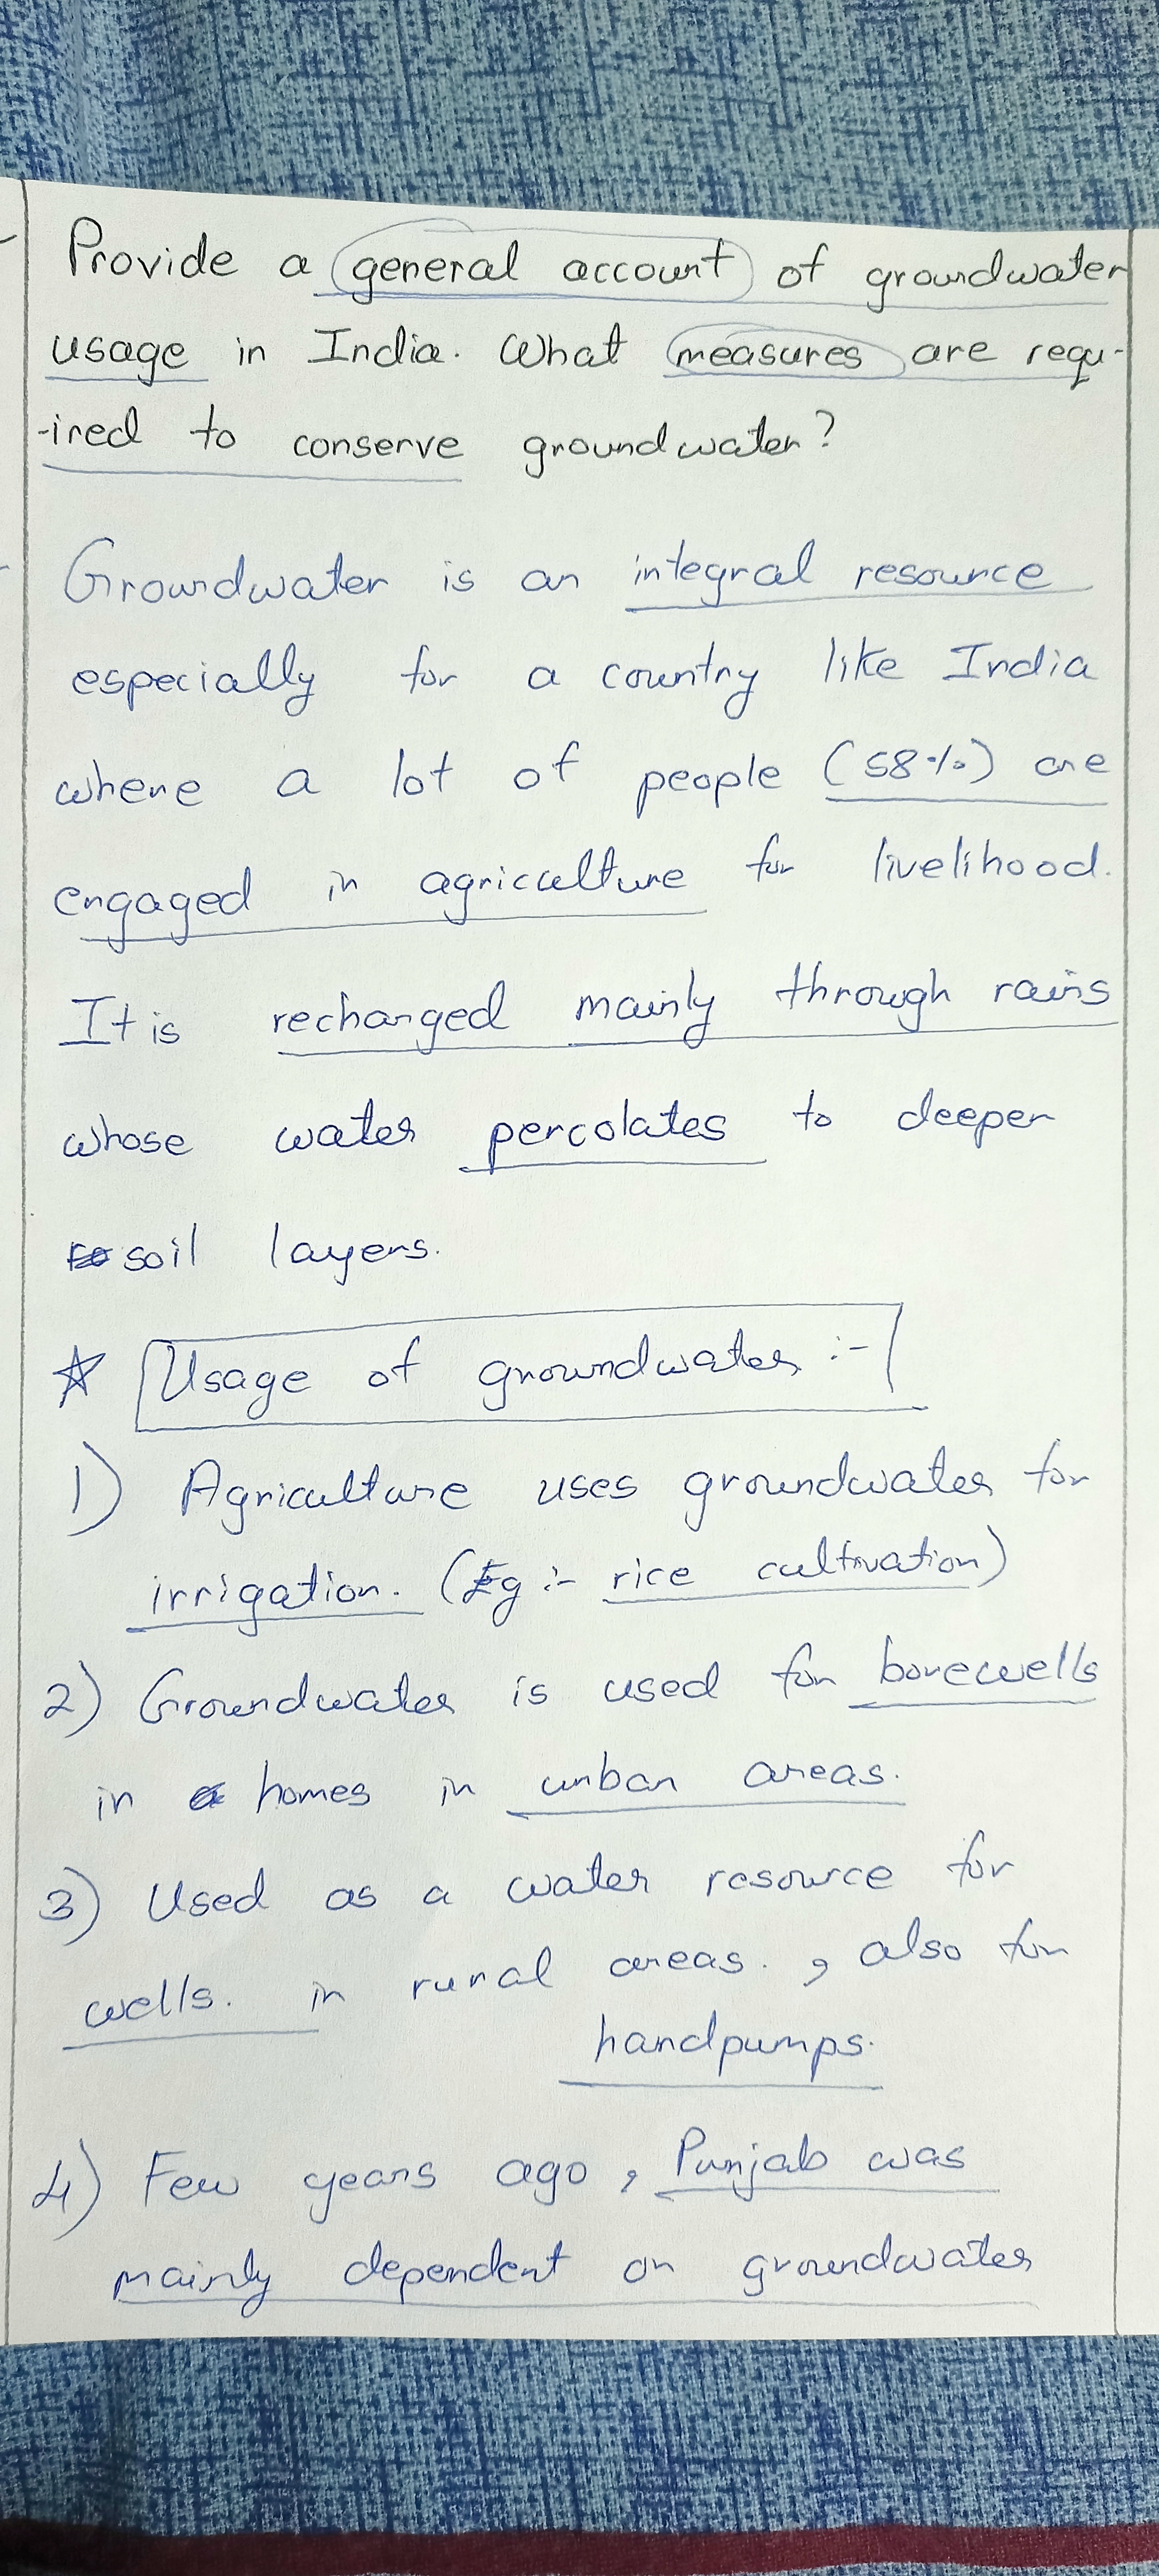 Provide a general account of groundwater
usage in India. What measures are requ-
-ired to conserve groundwater?
Groundwater is an integral resource
especially for a country like India
where a lot of people (58%) are
engaged in agriculture for livelihood.
It is recharged mainly through rains
whose water percolates to deeper
soil layers.
Usage of groundwater :-
1) Agriculture uses groundwater for
irrigation. (Eg :- rice cultivation)
2) Groundwater is used for borewells
in homes in urban areas.
3) Used as a water resource for
wells. in rural areas. , also for
handpumps.
4) Few years ago, Punjab was
mainly dependent on groundwater